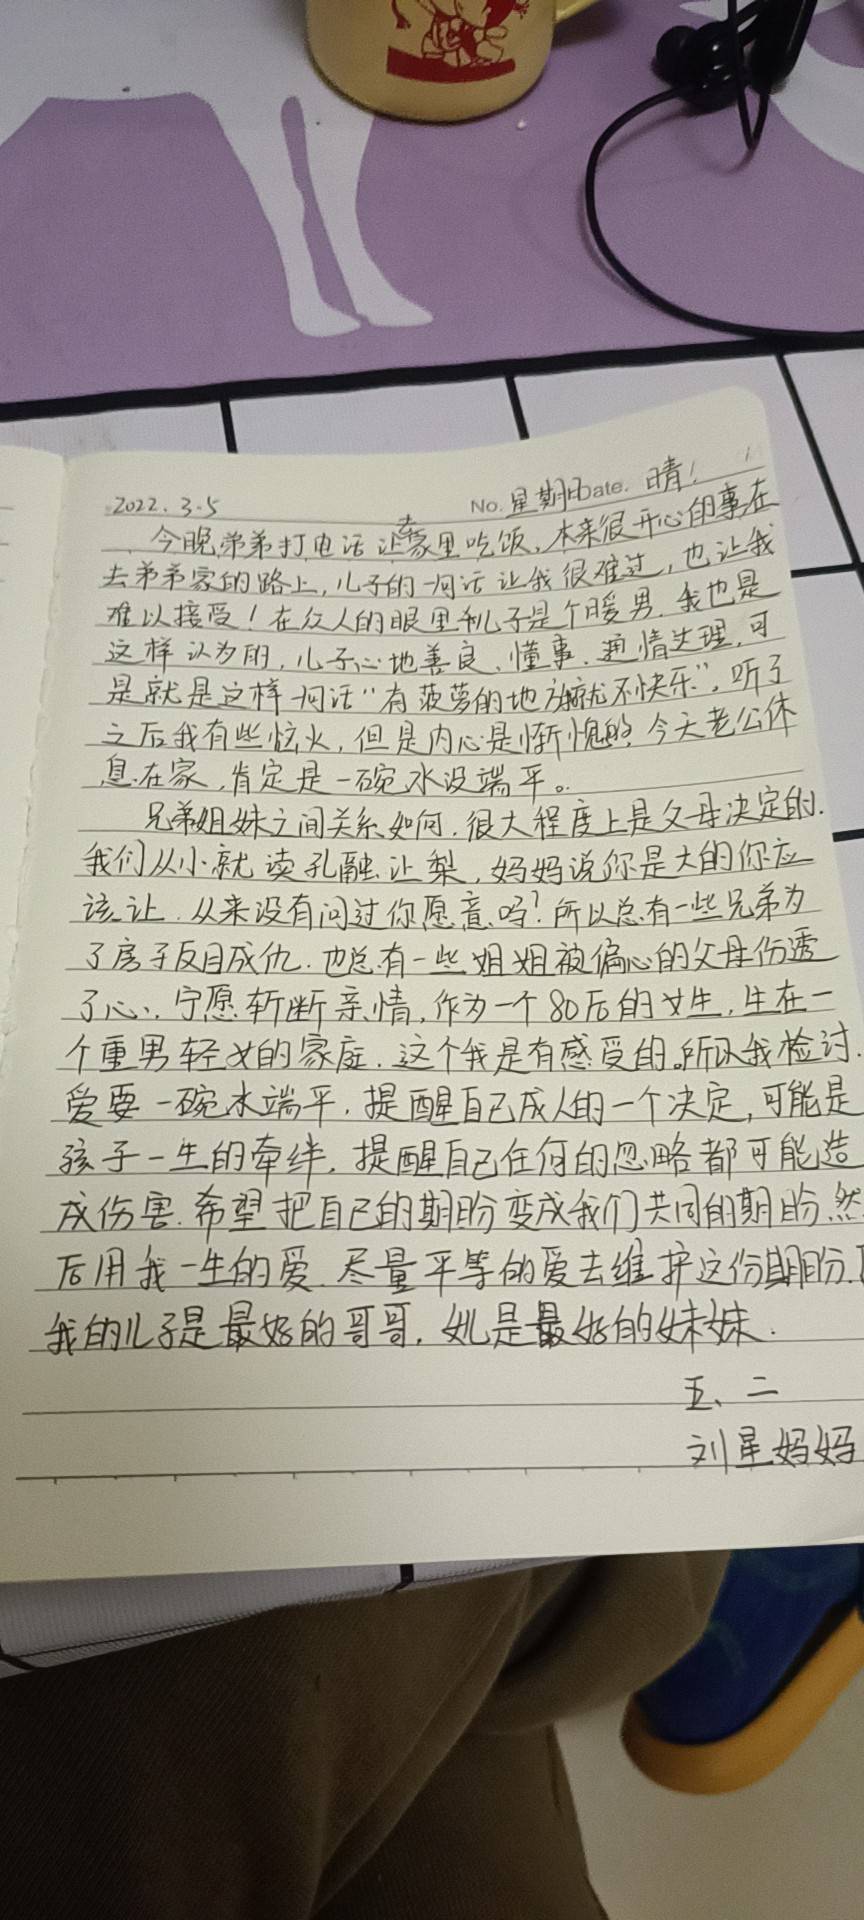 2022.3.5 No. 星期日 Date. 晴!
今晚,弟弟打电话让去家里吃饭,本来很开心的事在
去弟弟家的路上,儿子的一句话让我很难过,也让我
难以接受!在众人的眼里我儿子是个暖男.我也是
这样认为的,儿子心地善良、懂事、通情达理,可
是就是这样一句话“有菠萝的地方就不快乐”,听了
之后我有些炫火,但是内心是惭愧的,今天老公休
息在家,肯定是一碗水没端平。
兄弟姐妹之间关系如何,很大程度上是父母决定的.
我们从小就读孔融让梨,妈妈说你是大的你应
该让,从来没有问过你愿意吗?所以总有一些兄弟为
了房子反目成仇.也总有一些姐姐被偏心的父母伤透
了心,宁愿斩断亲情,作为一个80后的女生,生在一
个重男轻女的家庭.这个我是有感受的。所以我检讨.
爱要一碗水端平,提醒自己成人的一个决定,可能是
孩子一生的牵绊,提醒自己任何的忽略都可能造
成伤害.希望把自己的期盼变成我们共同的期盼.然
后用我一生的爱.尽量平等的爱去维护这份期盼.
我的儿子是最好的哥哥,她是最好的妹妹.
五、二
刘星妈妈